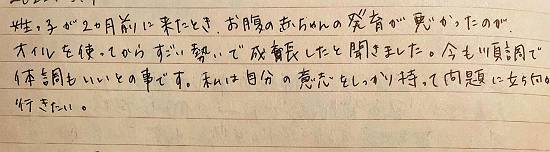 姓っ子が2ヵ月前に来たとき、お腹の赤ちゃんの発育が悪かったのが、
オイルを使ってからすごい勢いで成長したと聞きました。今も順調で
体調もいいとの事です。私は自分の意志をしっかり持って問題に立ち向
行きたい。